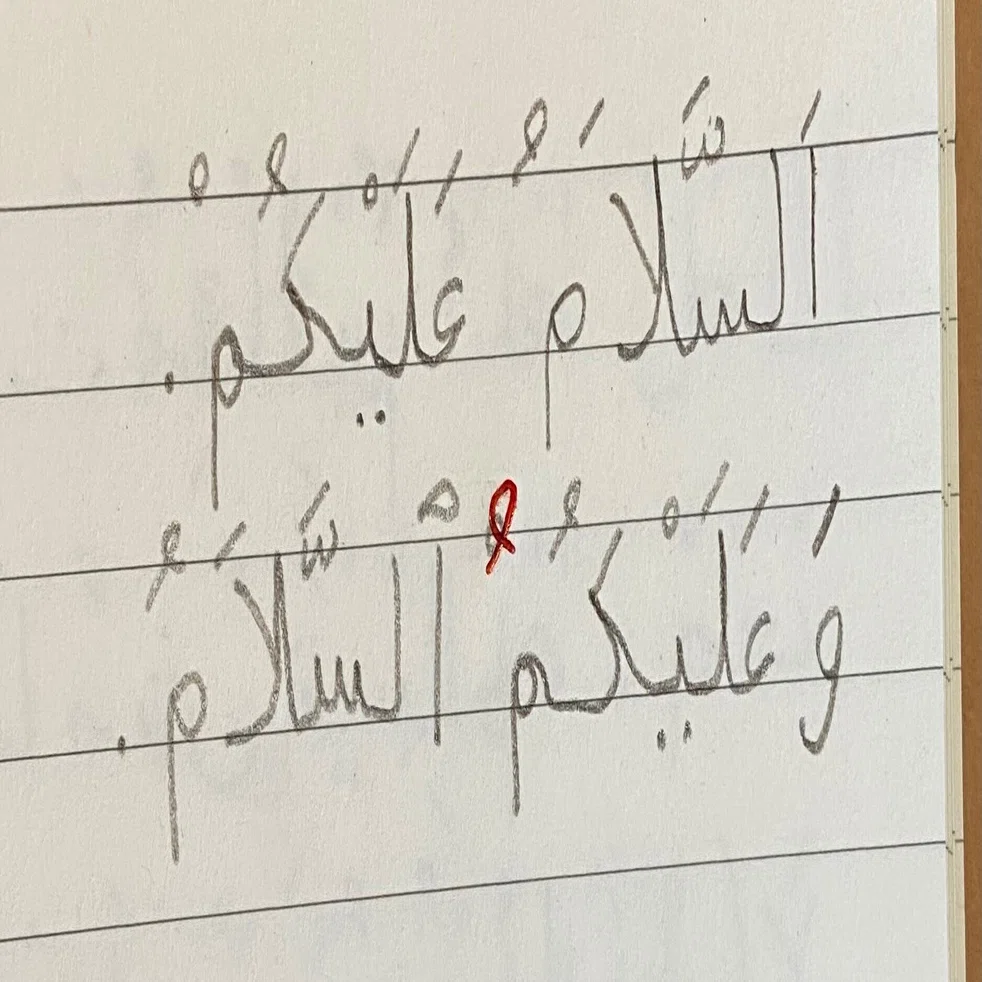 اَلسَّلَامُ عَلَيْكُمْ.
وَعَلَيْكُمُ ٱلسَّلَامُ.